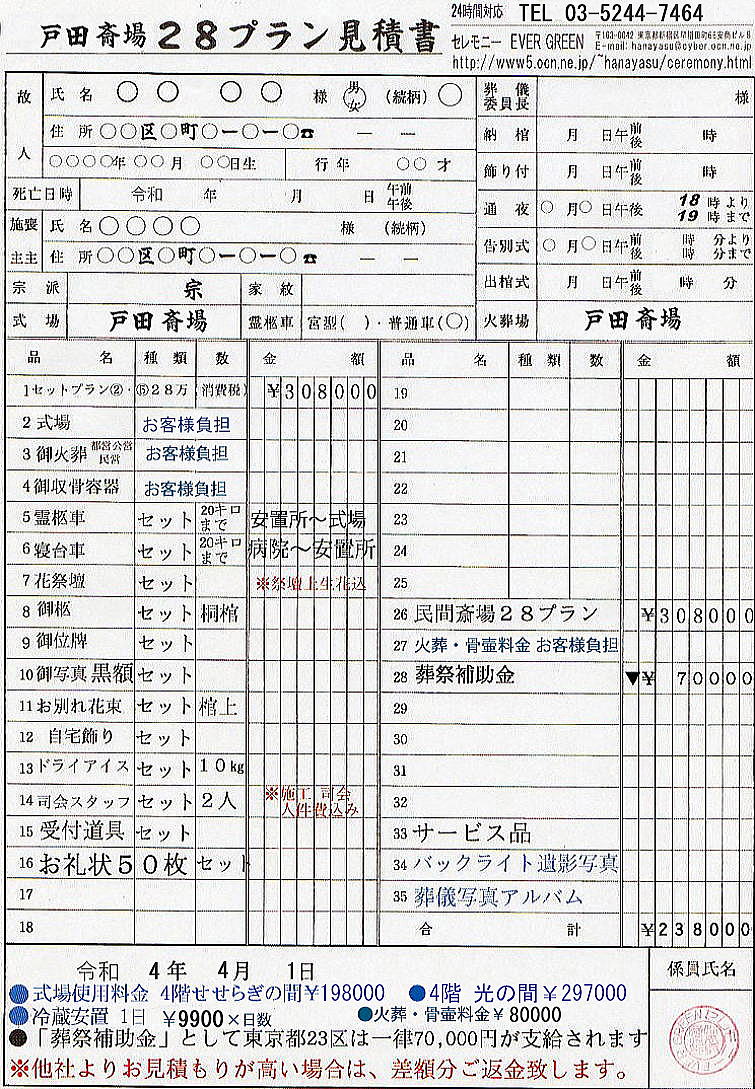 戸田斎場２８プラン見積書
24時間対応 TEL 03-5244-7464
セレモニー EVER GREEN
E-mail: hanayasu@cyber.ocn.ne.jp
http://www5.ocn.ne.jp/~hanayasu/ceremony.html
故人
氏名 ○ ○ ○ ○ 様 男 女 (続柄) ○
住所 ○○区○町○ー○ー○☎ ― ―
○○○○年○○月 ○○日生 行年 ○○才
死亡日時 令和 年 月 日 午前 午後
施主 喪主
氏名 ○○○○ 様 (続柄)
住所 ○○区○町○ー○ー○☎ ― ―
宗派 宗 家紋
式場 戸田斎場 霊柩車 宮型( )・普通車(○)
葬儀委員長 様
納棺 月 日午前後 時
飾り付 月 日午前後 時
通夜 ○月○日午後 18時より 19時まで
告別式 ○月○日午前後 時 分より 時 分まで
出棺式 月 日午前後 時 分
火葬場 戸田斎場
品名 種類 数 金額
1セットプラン②・⑤28万(消費税) ¥308000
2式場 お客様負担
3御火葬 都営公営 民営 お客様負担
4御収骨容器 お客様負担
5霊柩車 セット 20キロまで 安置所～式場
6寝台車 セット 20キロまで 病院～安置所
7花祭壇 セット ※祭壇上生花込
8御柩 セット 桐棺
9御位牌 セット
10御写真 黒額 セット
11お別れ花束 セット 棺上
12 自宅飾り セット
13ドライアイス セット 10kg
14司会スタッフ セット 2人 ※施工 司会 人件費込み
15受付道具 セット
16お礼状５０枚 セット
17
18
品名 種類 数 金額
19
20
21
22
23
24
25
26 民間斎場２８プラン ¥308000
27 火葬・骨壷料金 お客様負担
28 葬祭補助金 ▼¥ 70000
29
30
31
32
33 サービス品
34 バックライト遺影写真
35 葬儀写真アルバム
合計 ¥238000
令和 4年 4月 1日
係員氏名
●式場使用料金 4階せせらぎの間¥198000 ●4階 光の間¥297000
●冷蔵安置 1日 ¥9900×日数 ●火葬・骨壷料金¥80000
●「葬祭補助金」として東京都23区は一律70,000円が支給されます
※他社よりお見積もりが高い場合は、差額分ご返金致します。